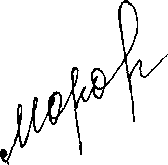 морок